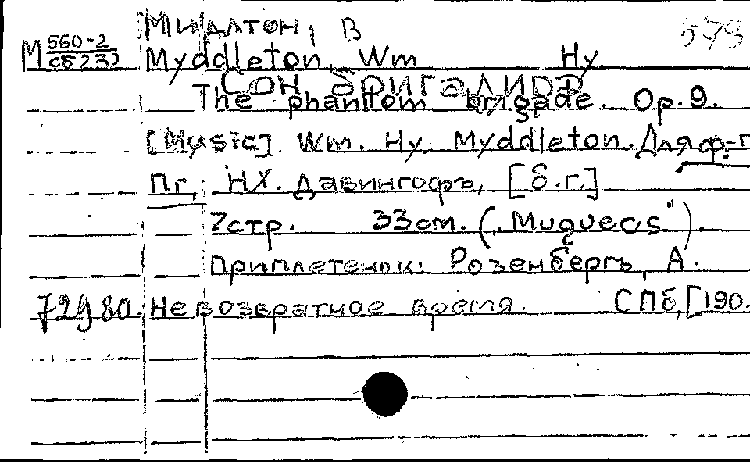 Мидлтон, В
М 560-2 / сб 232 Myddleton, Wm Hy
Сон бригадира
The phantom brigade. Op. 9.
[Music]. Wm. Hy. Myddleton. Для ф-п
Пг., Н.Х. Давингофъ, [б.г.]
7стр. 33см. („Muguets").
Приплетенык: Розенбергъ, А.
72980. Невозвратное время. СПб, [190.